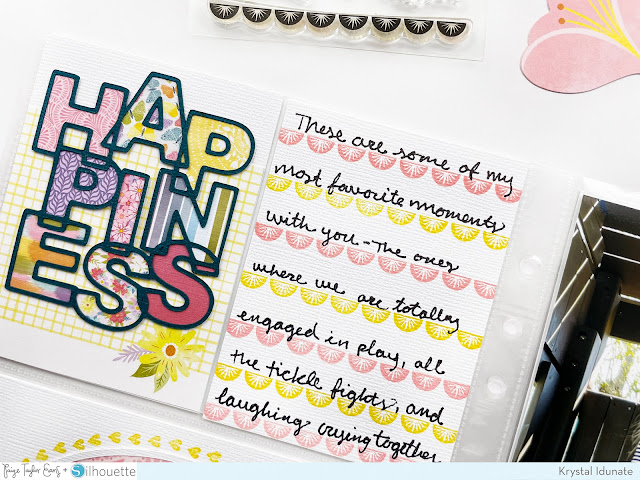 HAP
PIN
ESS
These are some of my
most favorite moments
with you - The ones
where we are totally
engaged in play, all
the tickle fights, and
laughing, crying together
Paige Taylor Evans + Silhouette
Krystal Idunate